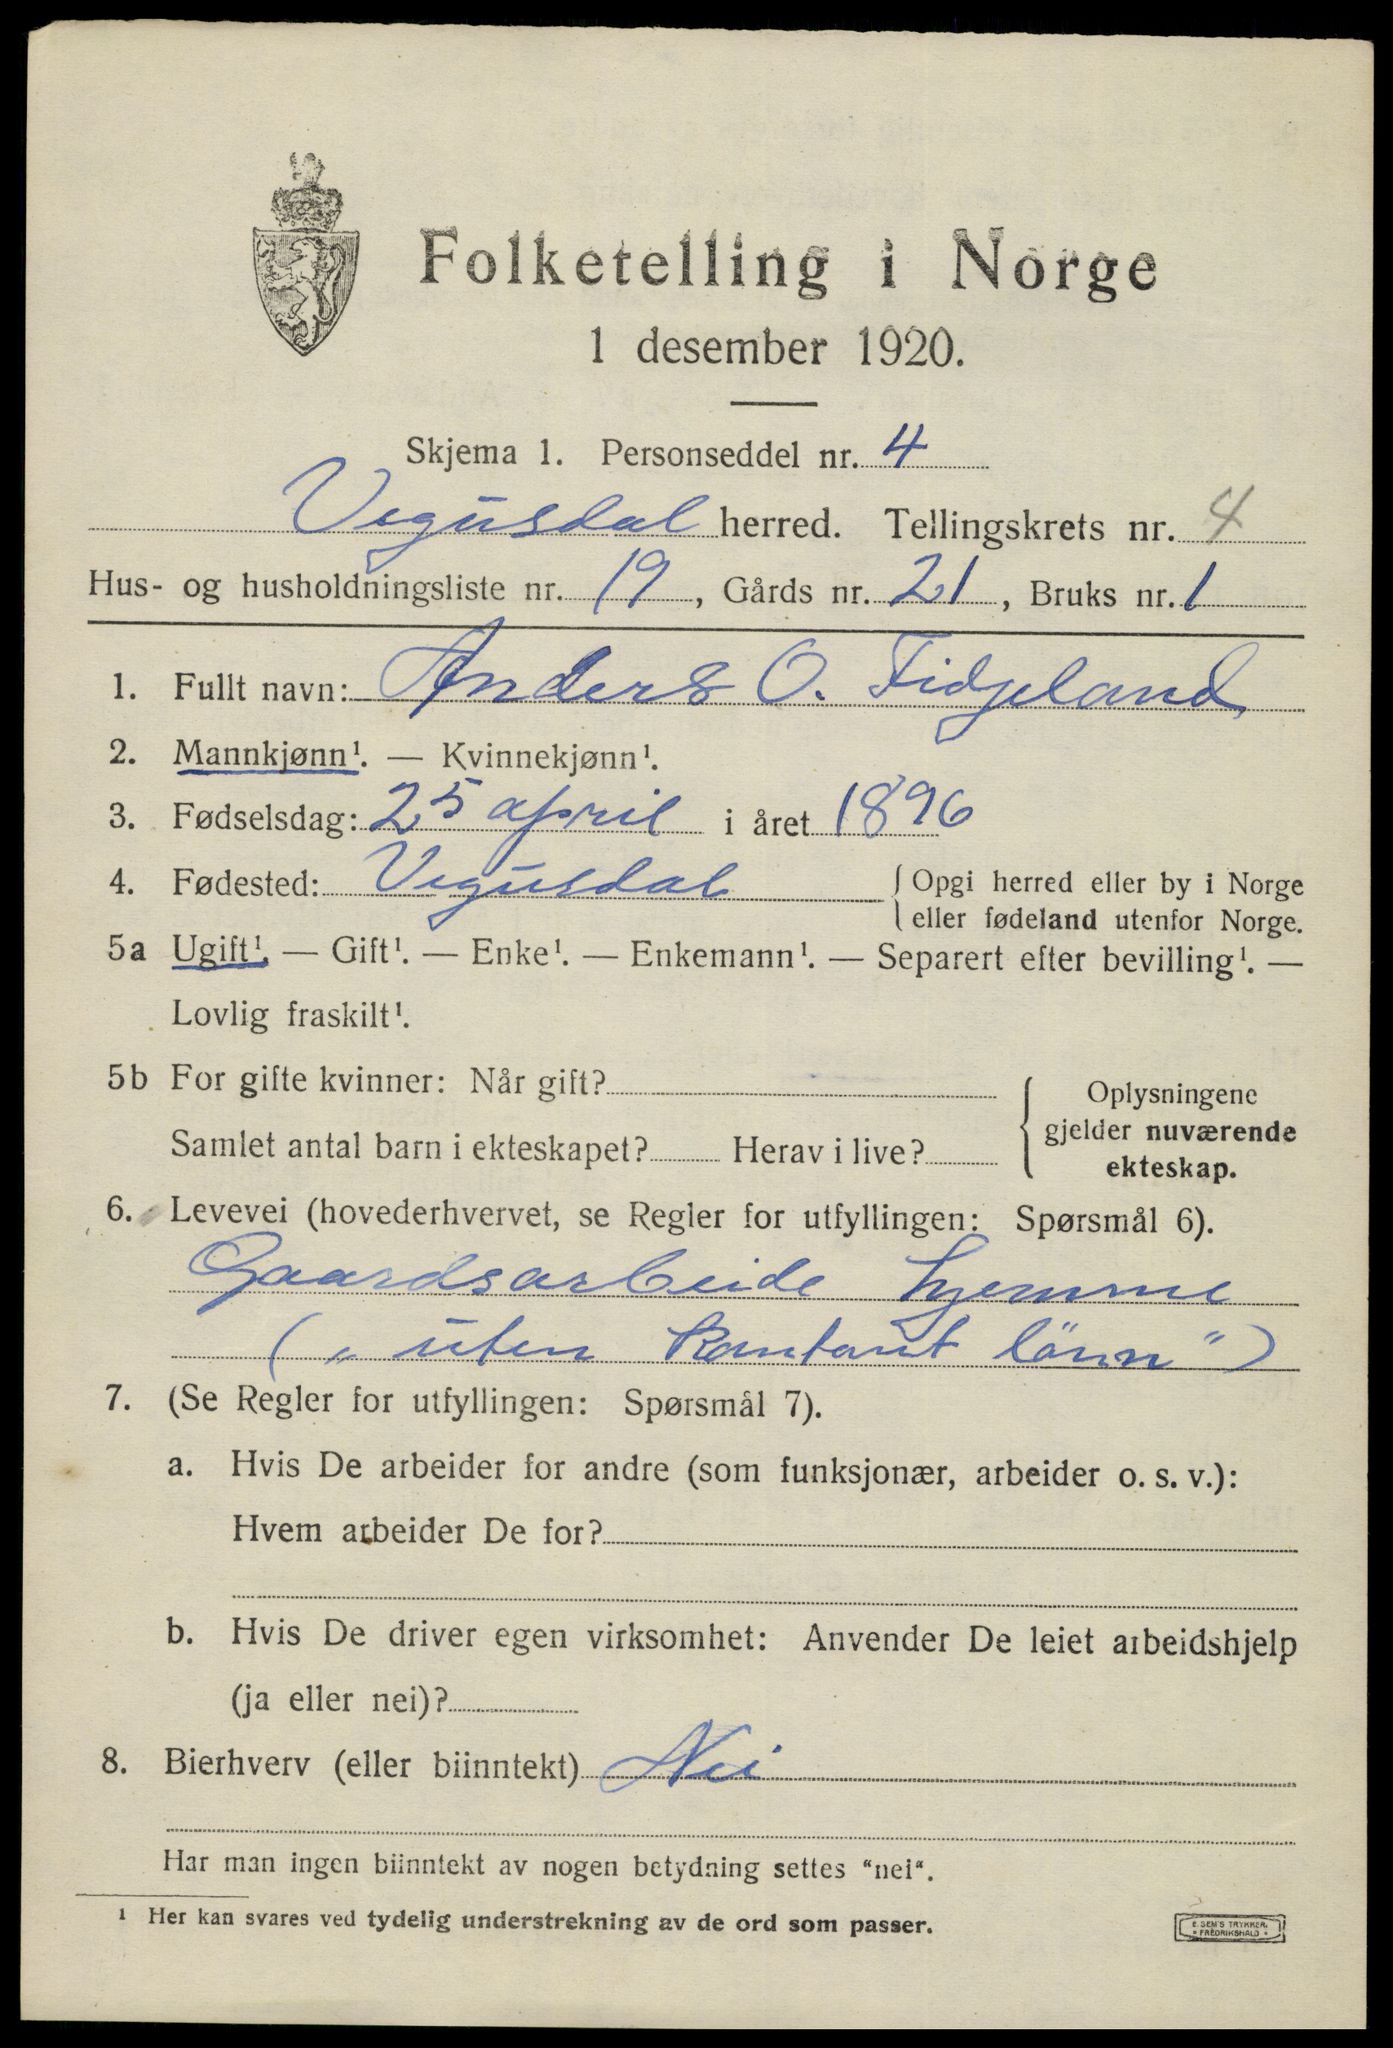 Folketelling i Norge
1 desember 1920.
Skjema 1. Personseddel nr. 4
Vegusdal herred. Tellingskrets nr. 4
Hus- og husholdningsliste nr. 19, Gårds nr. 21, Bruks nr. 1
1. Fullt navn: Anders O. Fidjeland
2. Mannkjønn¹. — Kvinnekjønn¹.
3. Fødselsdag: 25 april i året 1896
4. Fødested: Vegusdal { Opgi herred eller by i Norge
eller fødeland utenfor Norge.
5a Ugift¹. — Gift¹. — Enke¹. — Enkemann¹. — Separert efter bevilling¹. —
Lovlig fraskilt¹.
5b For gifte kvinner: Når gift?
Samlet antal barn i ekteskapet? Herav i live?
Oplysningene
gjelder nuværende
ekteskap.
6. Levevei (hovederhvervet, se Regler for utfyllingen: Spørsmål 6).
Gaardsarbeide hjemme
(„ uten kontant lönn")
7. (Se Regler for utfyllingen: Spørsmål 7).
a. Hvis De arbeider for andre (som funksjonær, arbeider o. s. v.):
Hvem arbeider De for?
b. Hvis De driver egen virksomhet: Anvender De leiet arbeidshjelp
(ja eller nei)?
8. Bierhverv (eller biinntekt) Nei
Har man ingen biinntekt av nogen betydning settes "nei".
¹ Her kan svares ved tydelig understrekning av de ord som passer.
E. SEM'S TRYKKERI
* FREDRIKSHALD *